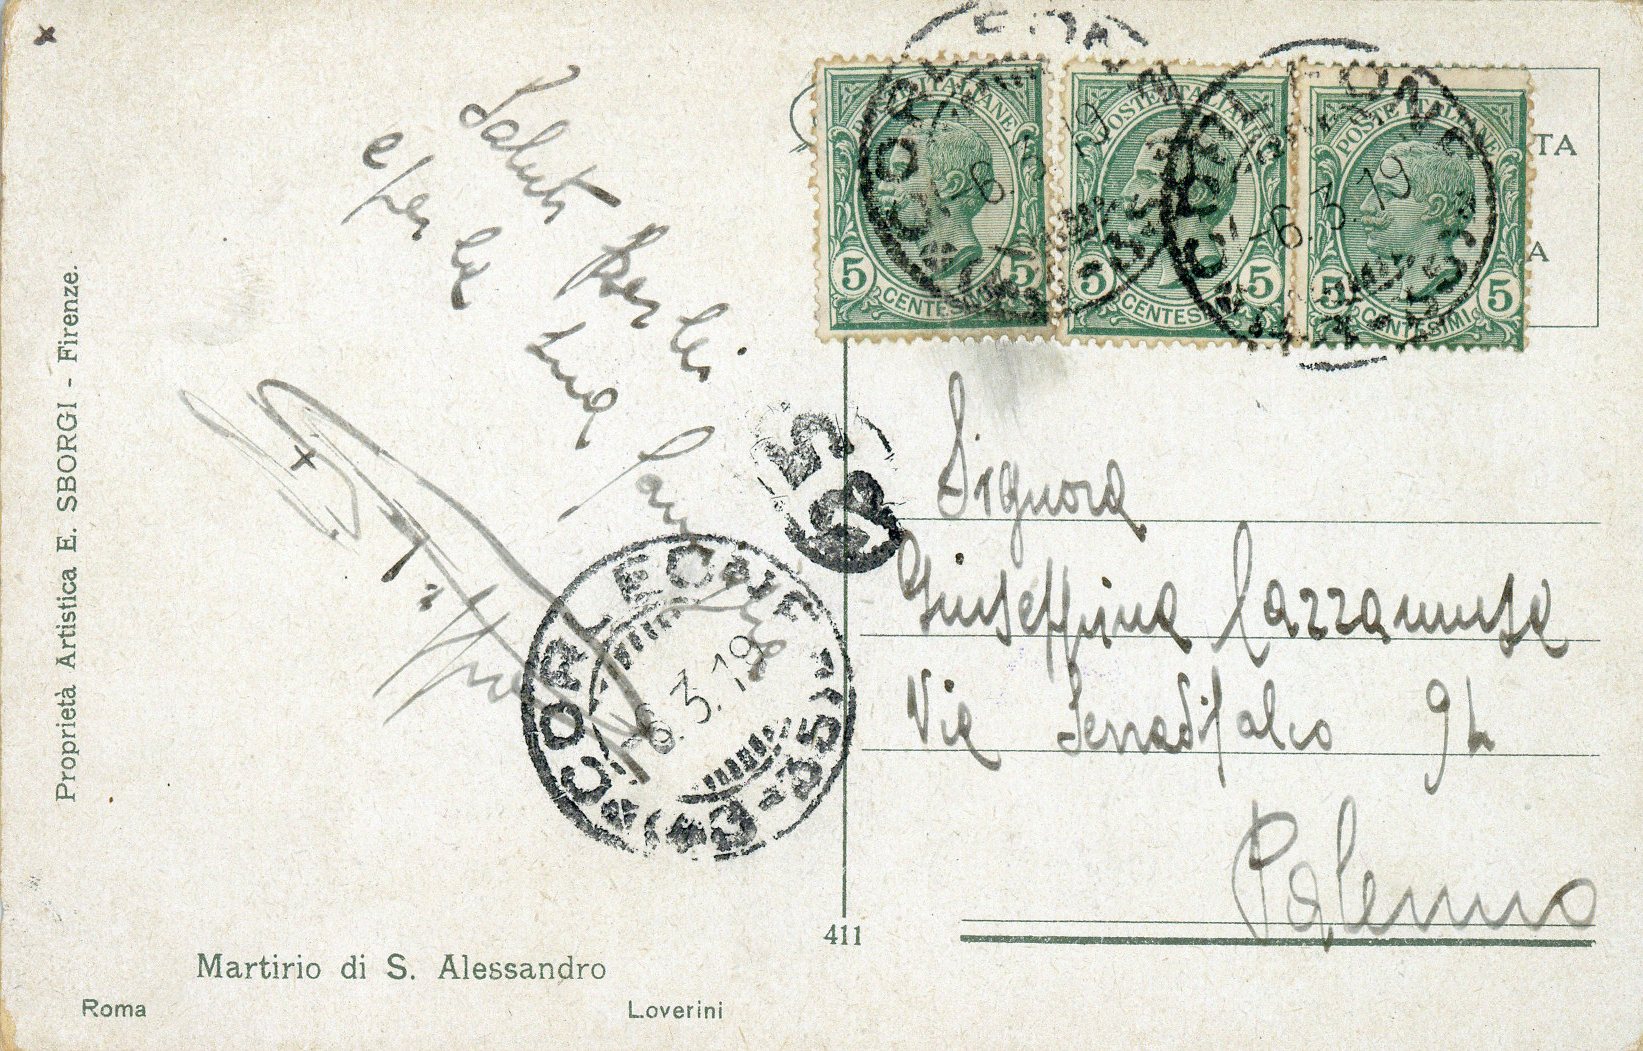 Saluti per lei
e per la sua famiglia
POSTE ITALIANE
5 CENTESIMI 5
POSTE ITALIANE
5 CENTESIMI 5
POSTE ITALIANE
5 CENTESIMI 5
-6.3.19
-6.3.19
TA
A
Signora
Giuseppina
Via Serradifalco 94
Palermo
CORLEONE
6.3.19
Proprietà Artistica E. SBORGI - Firenze.
411
Martirio di S. Alessandro
Roma
Loverini